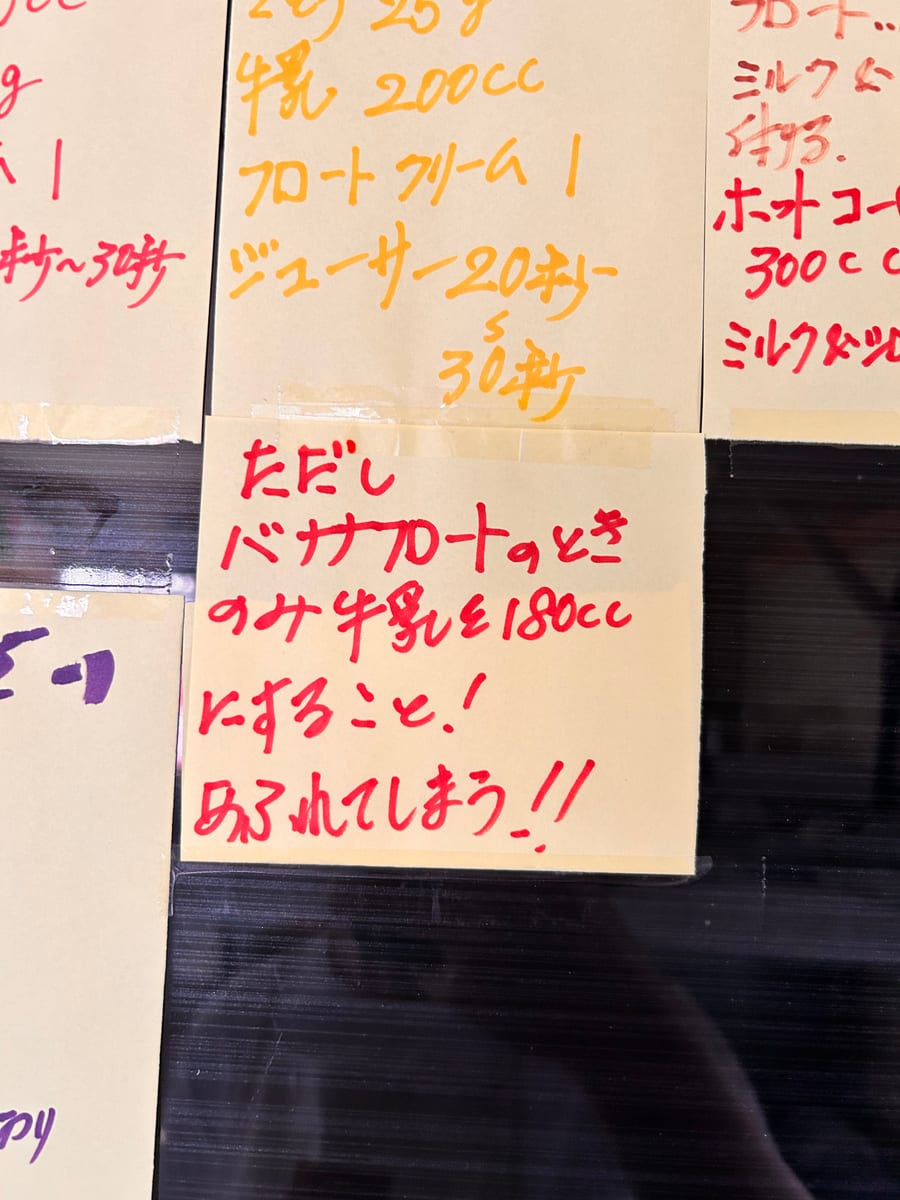 g
1
秒～30秒
25g
牛乳 200cc
フロートクリーム 1
ジューサー20秒
〜
30秒
ただし
バナナフロートのとき
のみ牛乳を180cc
にすること!
あふれてしまう!!
フロート
ミルク&
付する.
ホットコー
300cc
ミルク&シロ